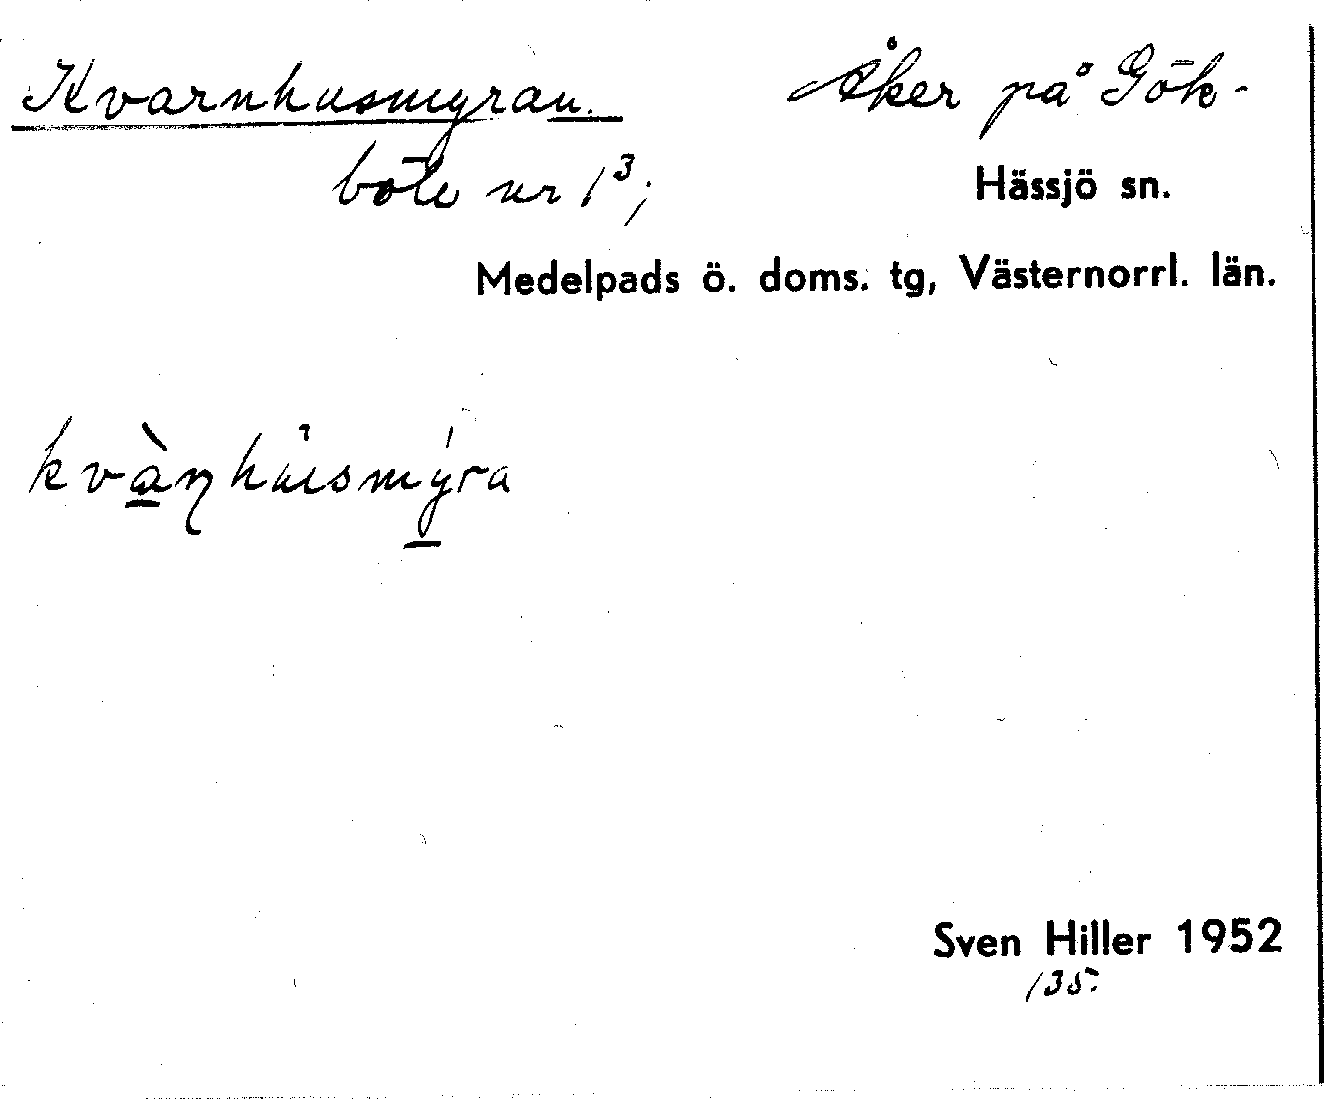 Kvarnhusmyran. Åker på Gök-
böle nr 1³;
Hässjö sn.
Medelpads ö. doms. tg, Västernorrl. län.
kvàɳhùsmýra
Sven Hiller 1952
135.